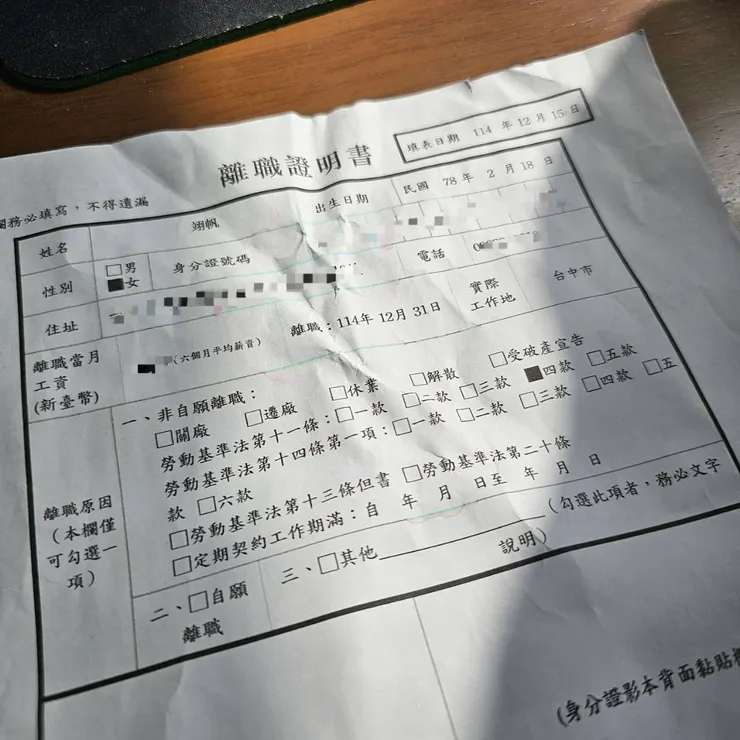 離職證明書
填表日期 114 年 12 月 15 日
欄務必填寫，不得遺漏
姓名 翊帆 出生日期 民國 78 年 2 月 18 日
性別 □男 ■女 身分證號碼 電話
住址
實際工作地 台中市
離職當月工資(新臺幣) (六個月平均薪資) 離職：114年 12月 31日
離職原因(本欄僅可勾選一項)
一、非自願離職：
□關廠 □遷廠 □休業 □解散 □受破產宣告
勞動基準法第十一條：□一款 □二款 □三款 ■四款 □五款
勞動基準法第十四條第一項：□一款 □二款 □三款 □四款 □五
款 □六款
□勞動基準法第十三條但書 □勞動基準法第二十條
□定期契約工作期滿：自 年 月 日至 年 月 日
二、□自願離職
三、□其他 (勾選此項者，務必文字
說明)
(身分證影本背面黏貼